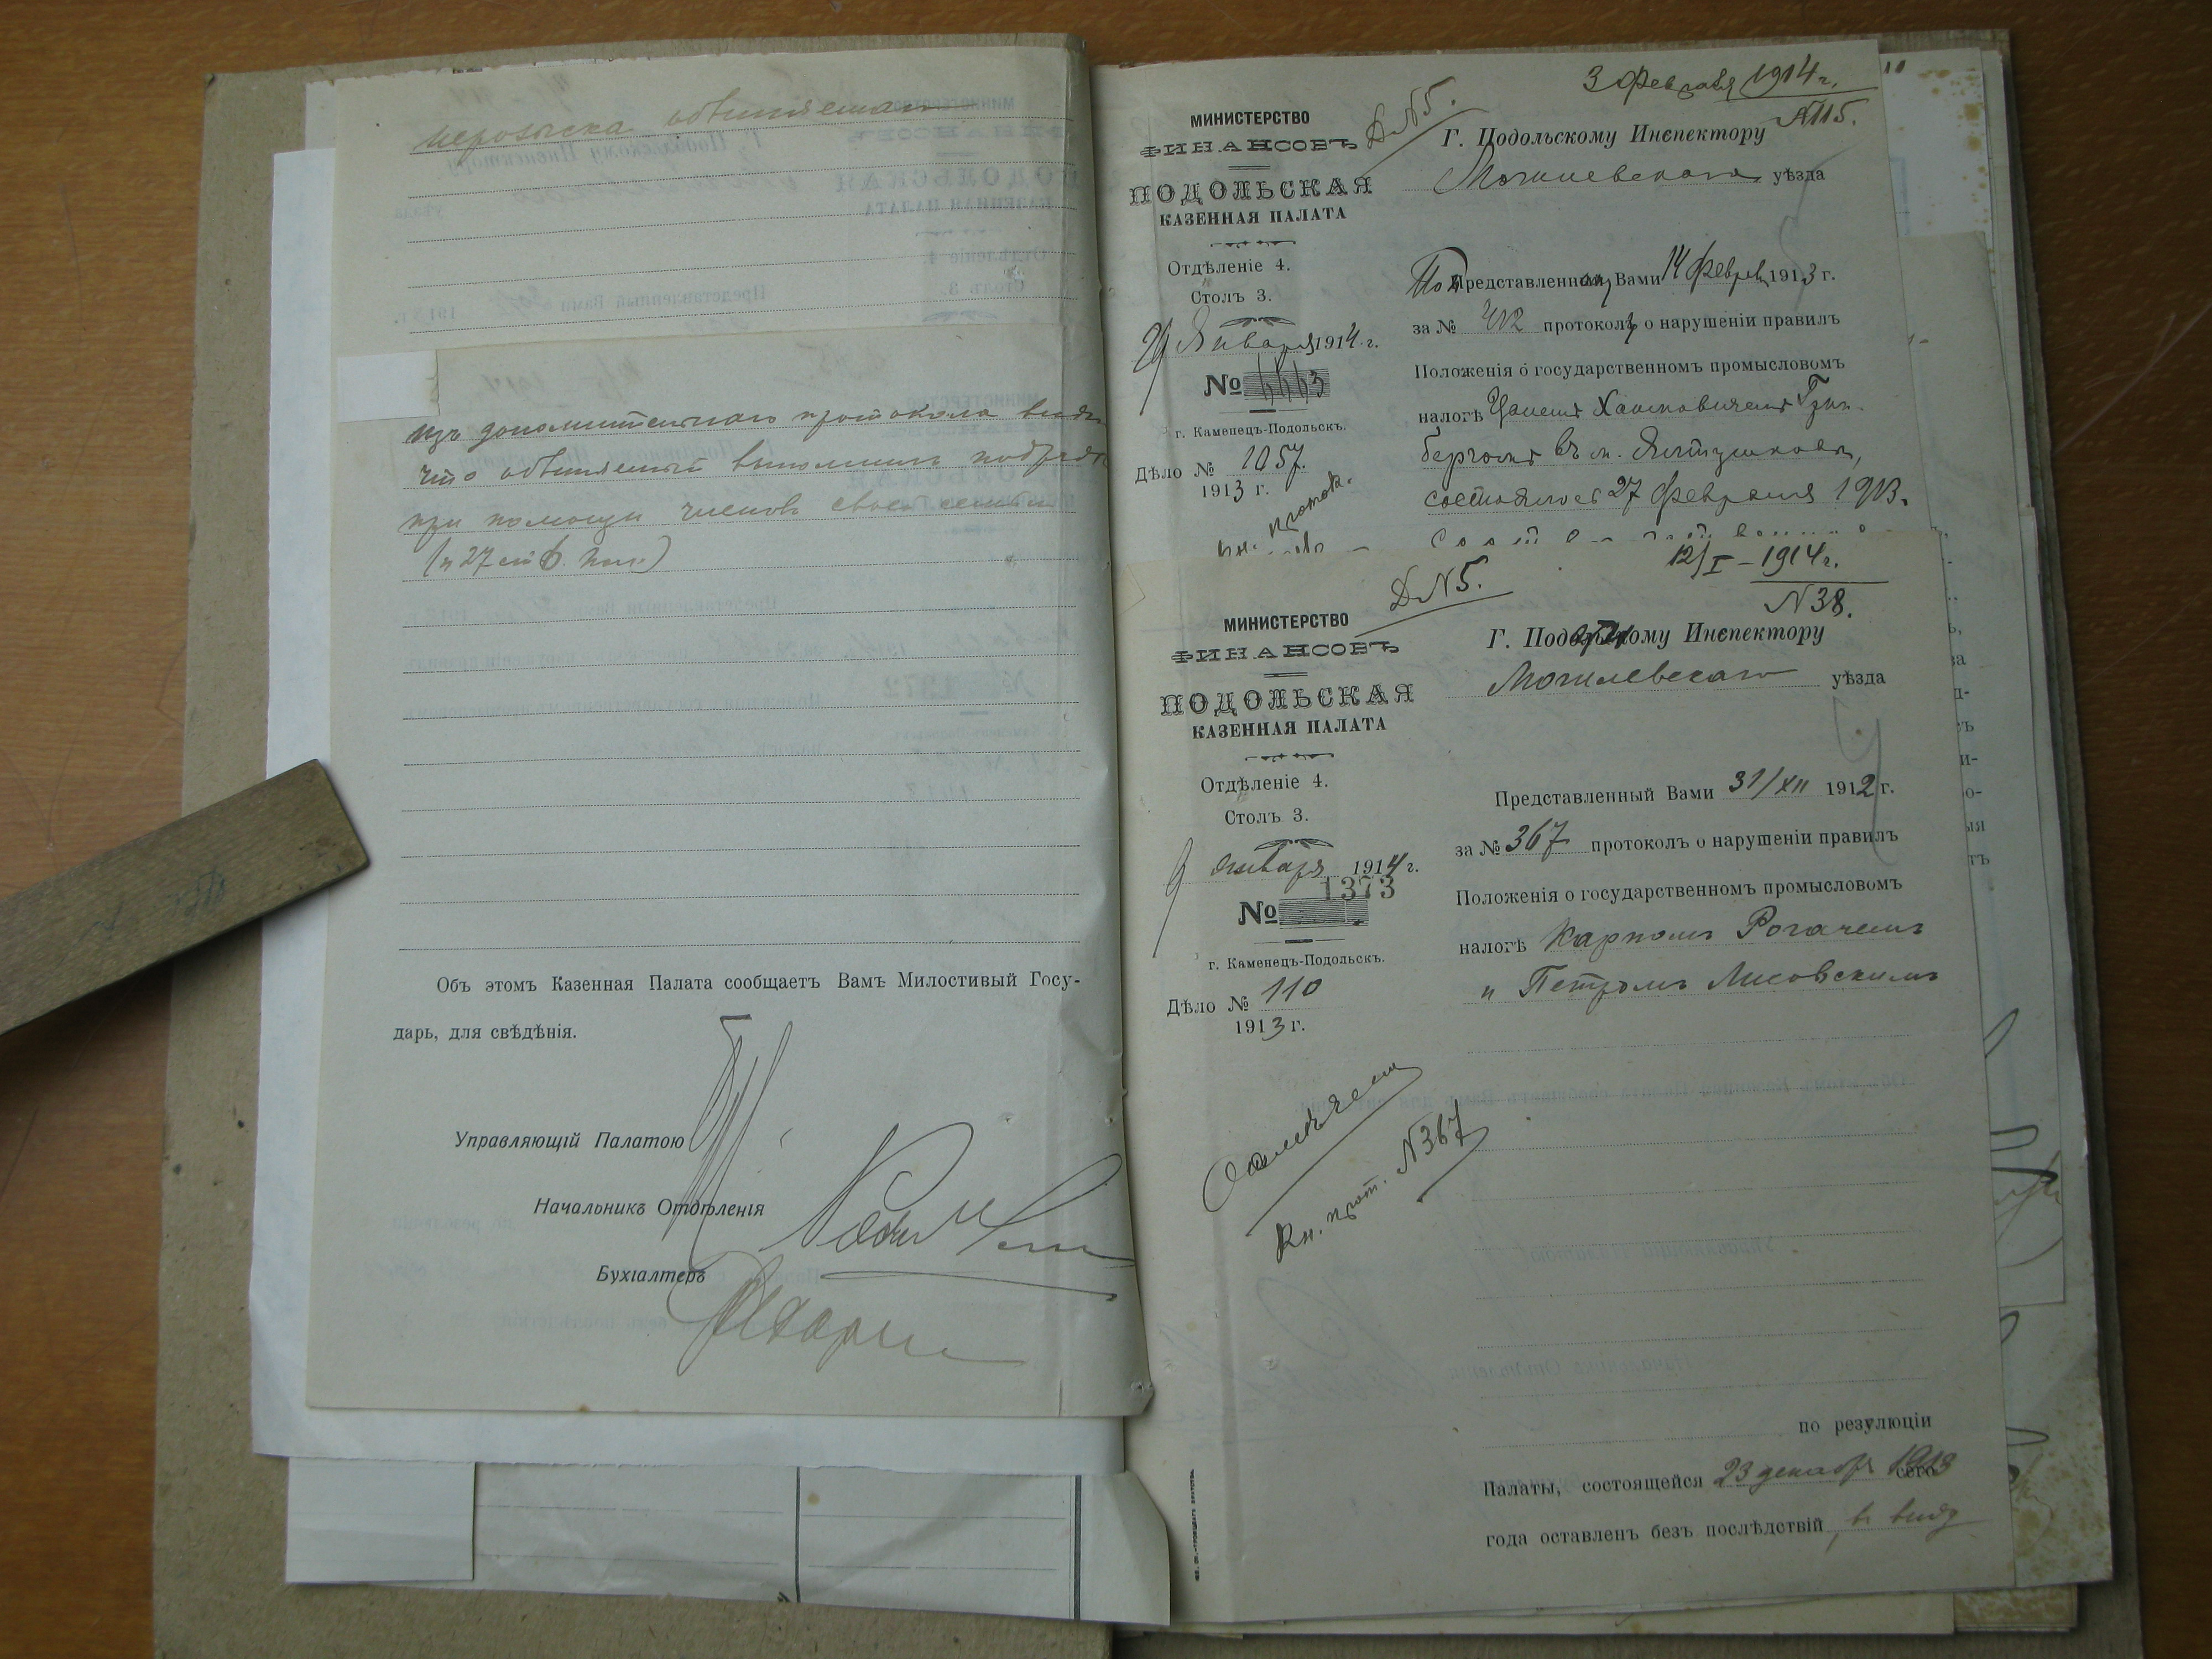 нерозыска обвиняемаго
изъ дополнительнаго протокола видно
что обвиняемый выполнилъ подрядъ
при помощи членовъ своей семьи
(п 27 ст 6. пол.)
Объ этомъ Казенная Палата сообщаетъ Вамъ Милостивый Госу-
дарь, для свѣдѣнія.
Управляющій Палатою
Начальникъ Отдѣленія
Бухгалтеръ
3 Февраля 1914 г.
№115.
Д №5.
МИНИСТЕРСТВО
ФИНАНСОВЪ
ПОДОЛЬСКАЯ
КАЗЕННАЯ ПАЛАТА
Отдѣленіе 4.
Столъ 3.
29 Января 1914 г.
№ 4463
г. Каменецъ-Подольскъ.
Дѣло № 1057.
1913 г.
Кн. проток.
Г. Подольскому Инспектору
Могилевскаго уѣзда
По Представленному Вами 14 Февраля 1913 г.
за № 412 протоколу о нарушеніи правилъ
Положенія о государственномъ промысловомъ
налогѣ Хаимовичемъ Грин-
бергомъ въ м. Ялтушковѣ,
состоялось 27 Февраля 1913.
12/I – 1914 г.
№38.
Д №5.
МИНИСТЕРСТВО
ФИНАНСОВЪ
ПОДОЛЬСКАЯ
КАЗЕННАЯ ПАЛАТА
Отдѣленіе 4.
Столъ 3.
9 января 1914 г.
№ 1373
г. Каменецъ-Подольскъ.
Дѣло № 110
1913 г.
Отмѣчено
Кн. прот. №367
Г. Подольскому Инспектору
Могилевскаго уѣзда
Представленный Вами 31/XII 1912 г.
за № 367 протоколъ о нарушеніи правилъ
Положенія о государственномъ промысловомъ
налогѣ Карпомъ Рогачемъ
и Петромъ Лисовскимъ
по резулюціи
Палаты, состоящейся 23 декабря 1913 сего
года оставленъ безъ послѣдствій, въ виду